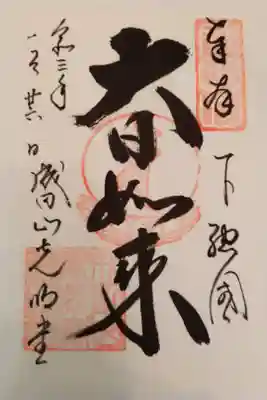 奉拝
下総国
大日如来
成田山光明堂
令三年
一月廿六日